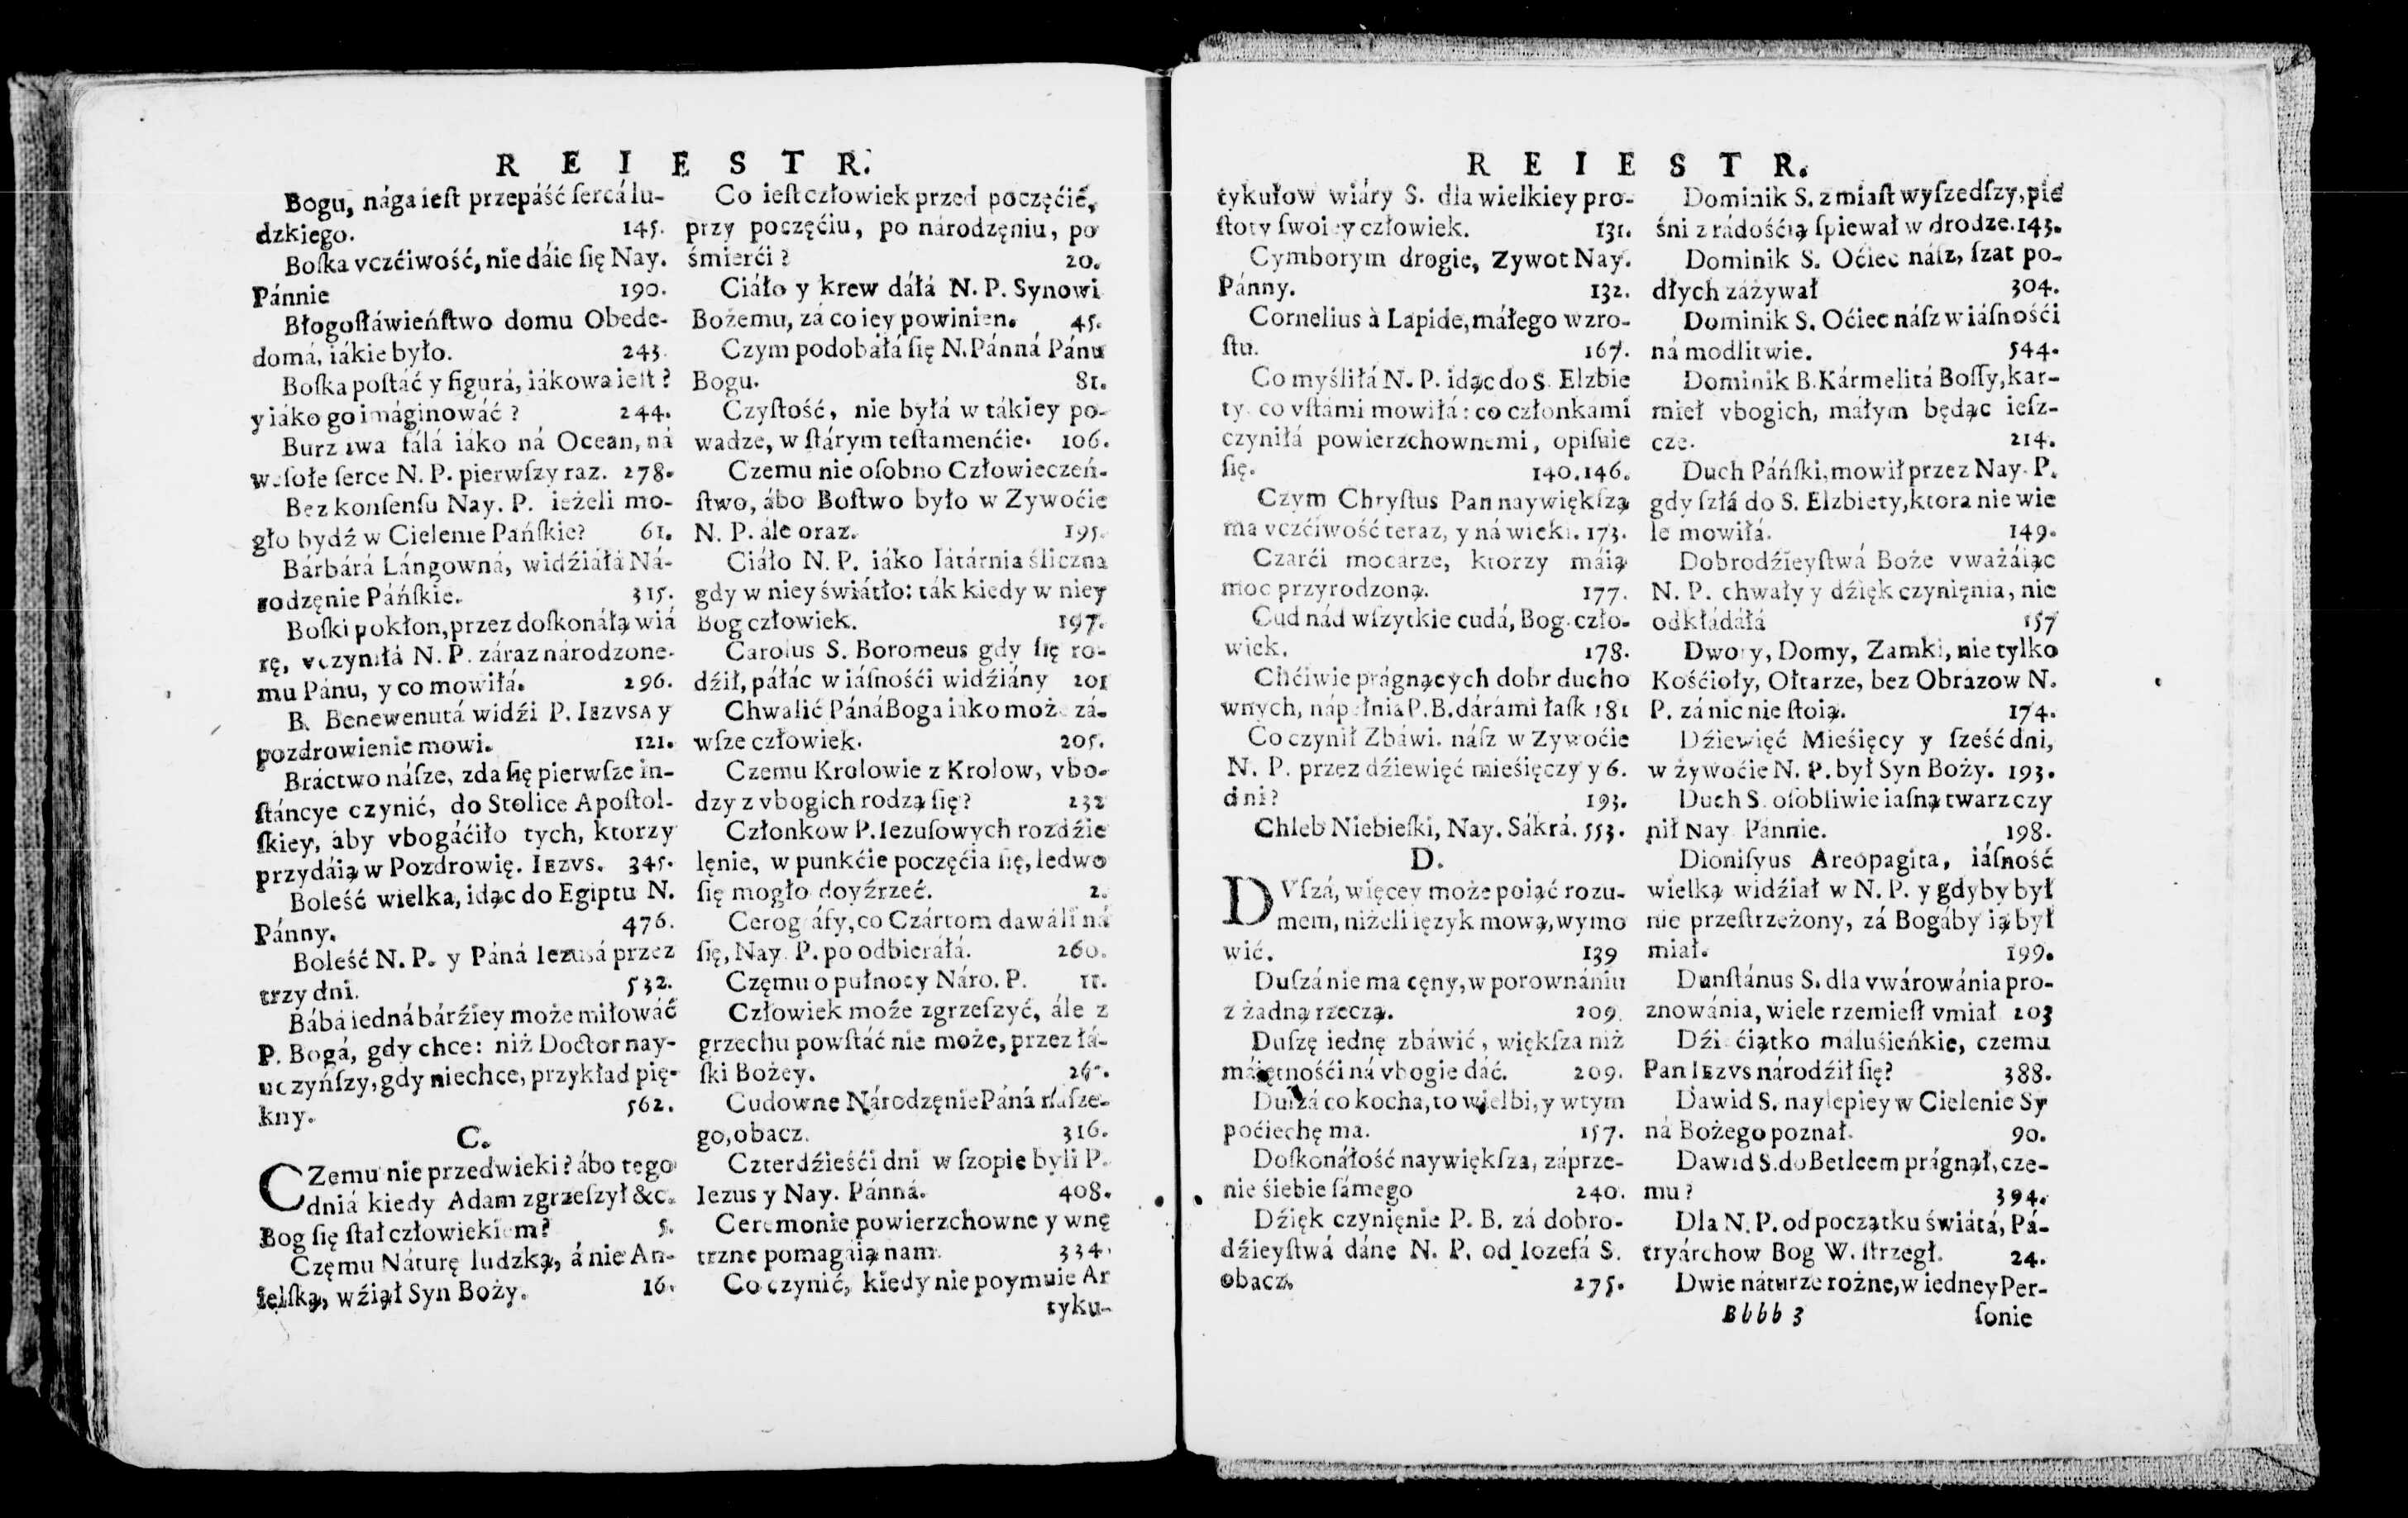 REIESTR.
Bogu, nága ieſt przepáść ſercá lu-
dzkiego. 145.
Boſka vczćiwość, nie dáie ſię Nay.
Pánnie 190.
Błogoſłáwieńſtwo domu Obede-
domá, iákie było. 243.
Boſka poſtáć y figurá, iákowa ieſt?
y iáko go imáginowáć? 244.
Burzliwa fálá iáko ná Ocean, ná
weſołe ſerce N. P. pierwſzy raz. 278.
Bez konſenſu Nay. P. ieżeli mo-
gło bydź w Cielenie Pańſkie? 61.
Bárbárá Lángowná, widźiáłá Ná-
rodzęnie Páńſkie. 315.
Boſki pokłon, przez doſkonáłą wiá
rę, vczyniłá N. P. záraz národzone-
mu Pánu, y co mowiłá. 296.
B. Benewenutá widźi P. IEZVSA y
pozdrowienie mowi. 121.
Bráctwo náſze, zda ſię pierwſze in-
ſtáncye czynić, do Stolice Apoſtol-
ſkiey, áby vbogáćiło tych, ktorzy
przydáią w Pozdrowię. IEZVS. 345.
Boleść wielka, idąc do Egiptu N.
Pánny. 476.
Boleść N. P. y Páná Iezusá przez
trzy dni. 532.
Bábá iedná bárźiey może miłowáć
P. Bogá, gdy chce: niż Doctor nay-
uczyńſzy, gdy niechce, przykład pię-
kny. 562.
C.
CZemu nie przedwieki? ábo tego
dniá kiedy Adam zgrzeſzył &c.
Bog ſię ſtał człowiekiem? 5.
Częmu Náturę ludzką, á nie An-
ielſką, wźiął Syn Boży. 16.
Co ieſt człowiek przed poczęćié,
przy poczęćiu, po národzęniu, po
śmierći? 20.
Ciáło y krew dáłá N. P. Synowi
Bożemu, zá co iey powinien. 45.
Czym podobáłá ſię N. Pánná Pánu
Bogu. 81.
Czyſtość, nie byłá w tákiey po-
wadze, w ſtárym teſtamenćie. 106.
Czemu nie oſobno Człowieczeń-
ſtwo, ábo Boſtwo było w Zywoćie
N. P. ále oraz. 195.
Ciáło N. P. iáko látárnia śliczna
gdy w niey świátło: ták kiedy w niey
Bog człowiek. 197.
Carolus S. Boromeus gdy ſię ro-
dźił, páłác w iáſnośći widźiány 201
Chwalić Páná Boga iako może zá-
wſze człowiek. 205.
Czemu Krolowie z Krolow, vbo-
dzy z vbogich rodzą ſię? 232
Członkow P. Iezuſowych rozdźie
lęnie, w punkćie poczęćia ſię, ledwo
ſię mogło doyźrzeć. 2.
Cerográfy, co Czártom dawáli ná
ſię, Nay. P. po odbieráłá. 260.
Częmu o pułnocy Náro. P. 11.
Człowiek może zgrzeſzyć, ále z
grzechu powſtáć nie może, przez łá-
ſki Bożey.
Cudowne Národzęnie Páná náſze-
go, obacz. 316.
Czterdźieśći dni w ſzopie byli P.
Iezus y Nay. Pánná. 408.
Ceremonie powierzchowne y wnę
trzne pomagáią nam. 334.
Co czynić, kiedy nie poymuie Ar
tyku-
REIESTR.
tykułow wiáry S. dla wielkiey pro-
ſtoty ſwoiey człowiek. 131.
Cymborym drogie, Zywot Nay.
Pánny. 132.
Cornelius à Lapide, máłego wzro-
ſtu. 167.
Co myśliłá N. P. idąc do S. Elzbie
ty. co vſtámi mowiłá: co członkami
czyniłá powierzchownemi, opiſuie
ſię. 140.146.
Czym Chryſtus Pan naywiększą
ma vczćiwość teraz, y ná wieki. 173.
Czarći mocarze, ktorzy máią
moc przyrodzoną. 177.
Cud nád wſzytkie cudá, Bog. czło-
wiek. 178.
Chćiwie prágnących dobr ducho
wnych, nápełnia P. B. dárámi łaſk 181
Co czynił Zbáwi. náſz w Zywoćie
N. P. przez dźiewięć mieśięczy y 6.
dni? 193.
Chleb Niebieſki, Nay. Sákrá. 553.
D.
DVſzá, więcey może poiąć rozu-
mem, niżeli ięzyk mową, wymo
wić. 139
Duſzá nie ma cęny, w porownániu
z żadną rzeczą. 209.
Duſzę iednę zbáwić, większa niż
máiętnośći ná vbogie dáć. 209.
Duſzá co kocha, to wielbi, y w tym
poćiechę ma. 157.
Doſkonáłość naywiększa, záprze-
nie śiebie ſámego 240.
Dźięk czynięnie P. B. zá dobro-
dźieyſtwá dáne N. P. od Iozefá S.
obacz. 275.
Dominik S. z miaſt wyſzedſzy, pie
śni z rádośćią ſpiewał w drodze. 143.
Dominik S. Oćiec náſz, ſzat po-
dłych záżywał 304.
Dominik S. Oćiec náſz w iáſnośći
ná modlitwie. 544.
Dominik B. Kármelitá Boſſy, kar-
mieł vbogich, máłym będąc ieſz-
cze. 214.
Duch Páńſki, mowił przez Nay. P.
gdy ſzłá do S. Elzbiety, ktora nie wie
le mowiłá. 149.
Dobrodźieyſtwá Boże vważáiąc
N. P. chwały y dźięk czynięnia, nie
odkłádáłá 157
Dwory, Domy, Zamki, nie tylko
Kośćioły, Ołtarze, bez Obrazow N.
P. zá nic nie ſtoią. 174.
Dźiewięć Mieśięcy y ſześć dni,
w żywoćie N. P. był Syn Boży. 193.
Duch S. oſobliwie iaſną twarz czy
nił Nay. Pánnie. 198.
Dioniſyus Areopagita, iáſność
wielką widźiał w N. P. y gdyby był
nie przeſtrzeżony, zá Bogáby ią był
miał. 199.
Dunſtánus S. dla vwárowánia pro-
znowánia, wiele rzemieſł vmiał 203
Dźiećiątko máluśieńkie, czemu
Pan IEZVS národźił ſię? 388.
Dawid S. naylepiey w Cielenie Sy
ná Bożego poznał. 90.
Dawid S. do Betleem prágnął, cze-
mu? 394.
Dla N. P. od początku świátá, Pá-
tryárchow Bog W. ſtrzegł. 24.
Dwie náturze rożne, w iedney Per-
Bbbb 3 ſonie